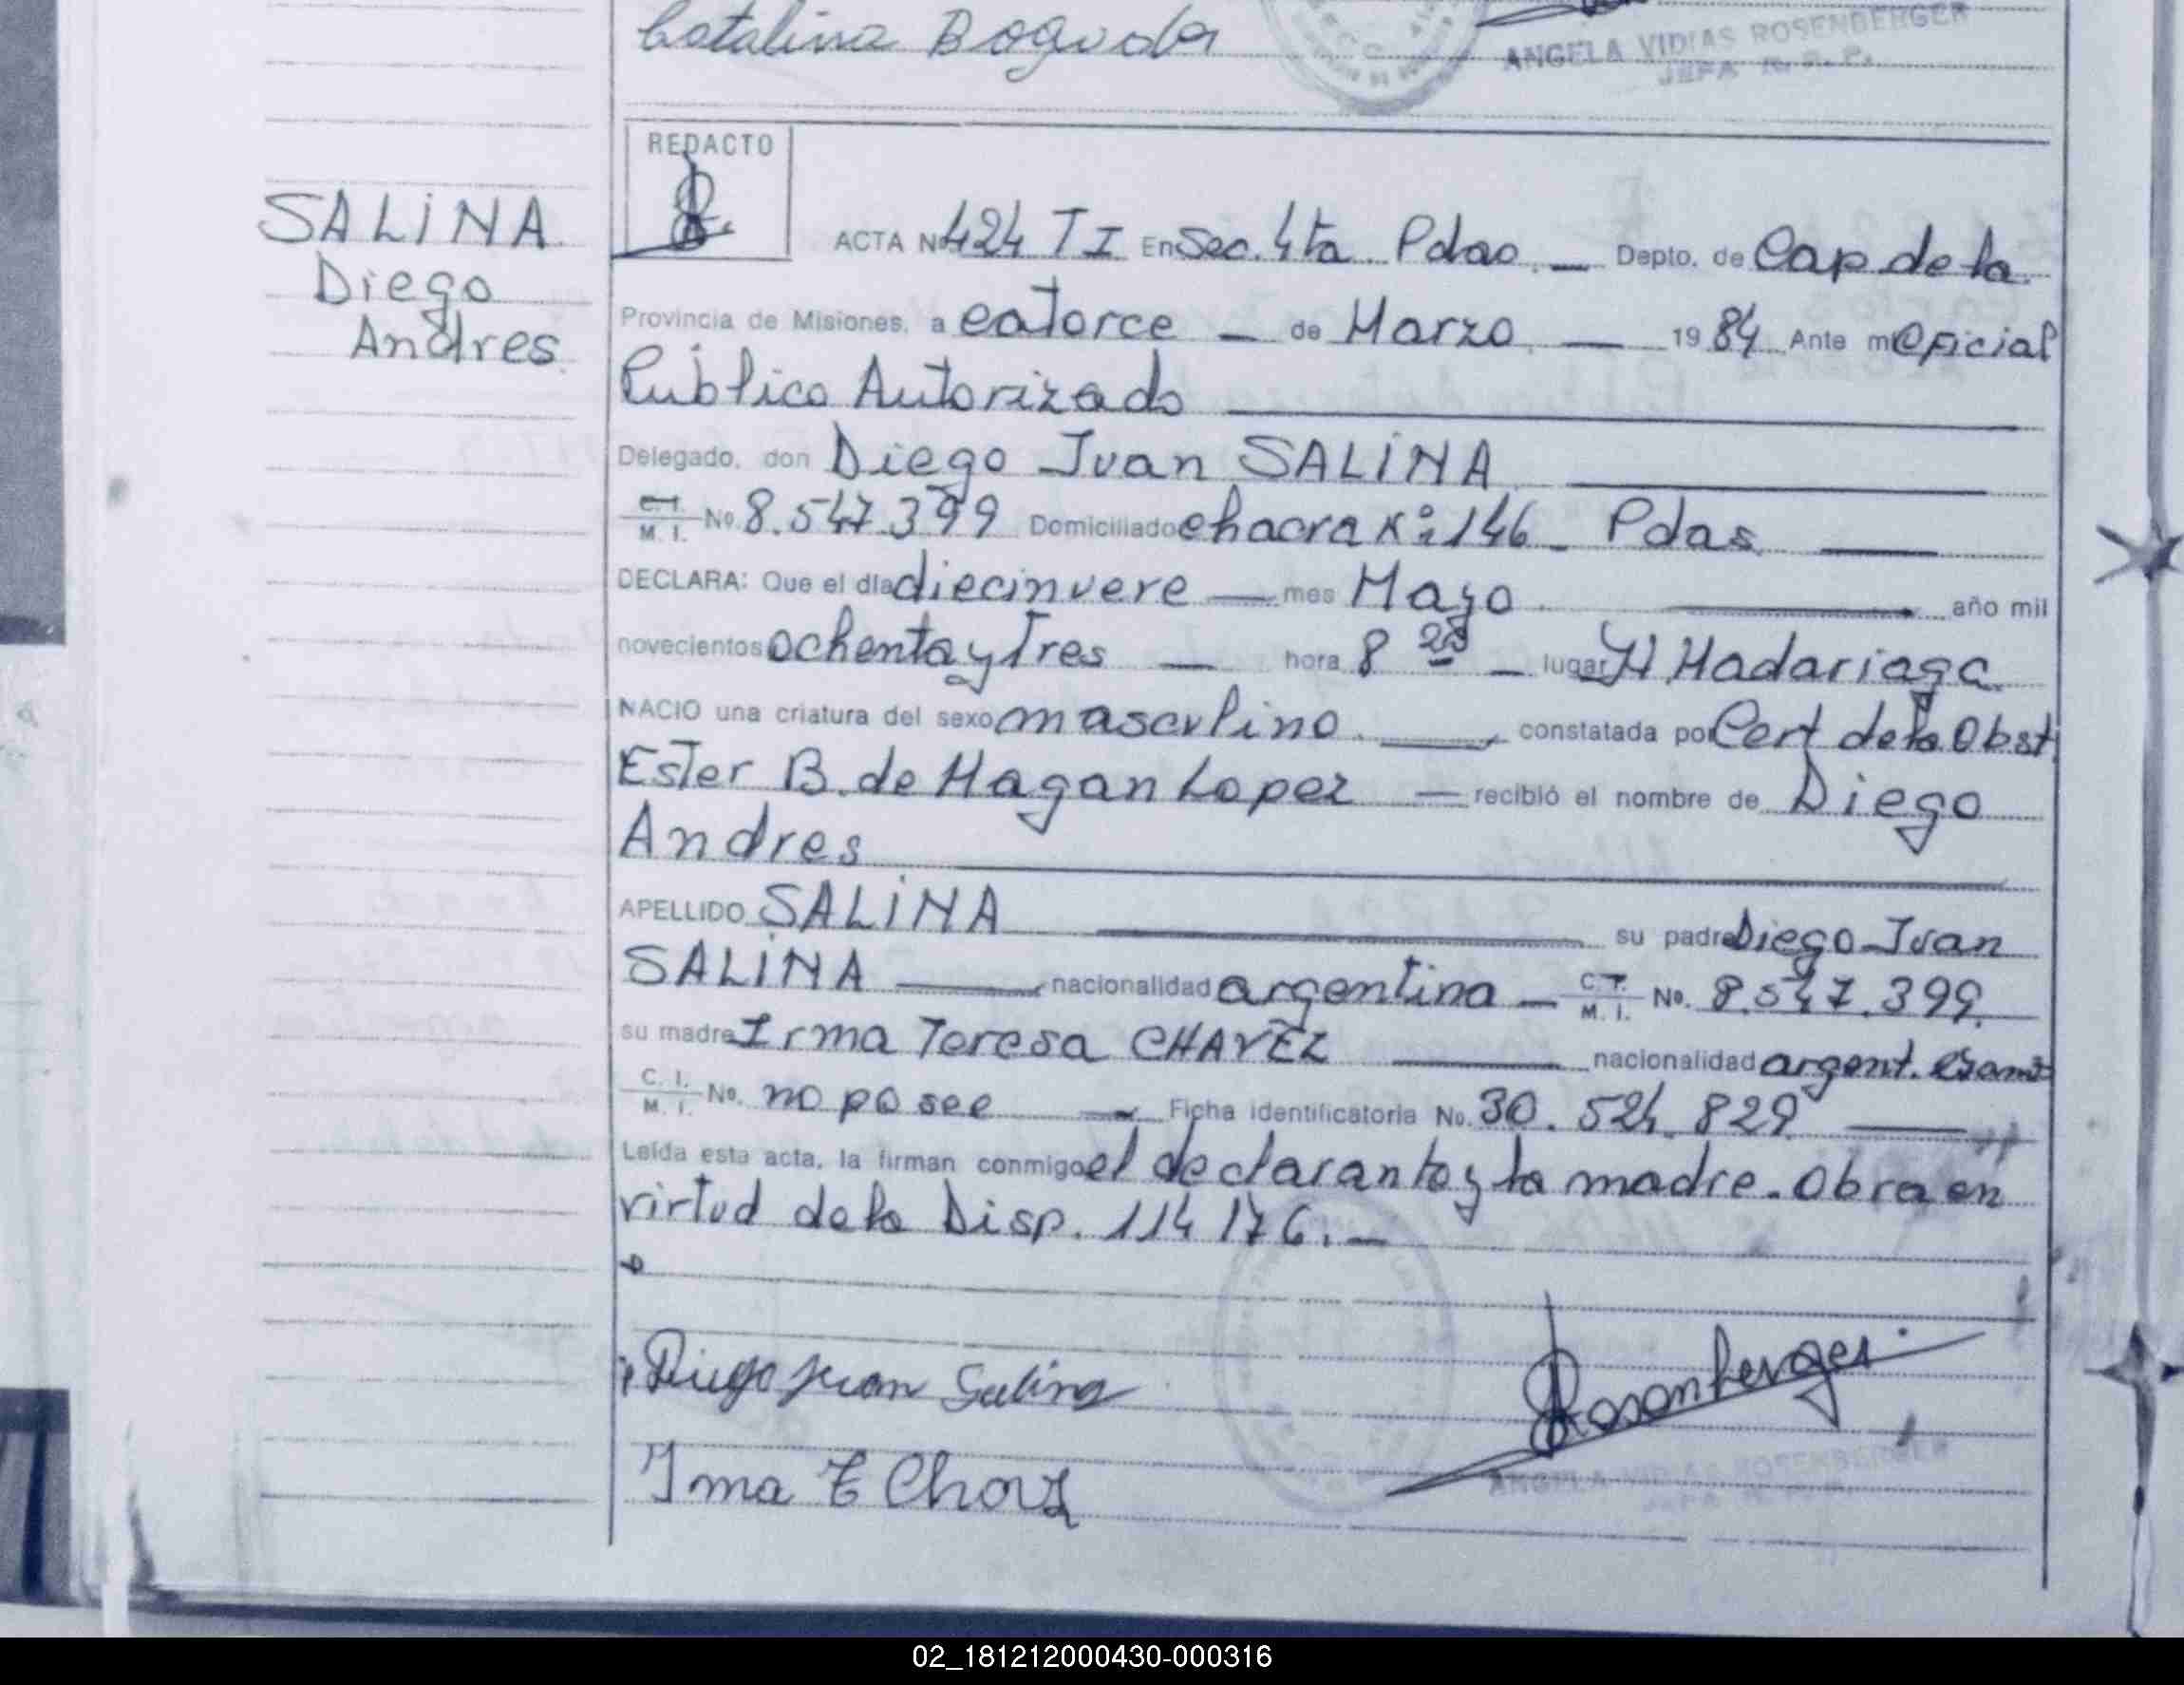 Catalina Bogvda
ANGELA VIDIAS ROSENBERGER
JEFA R. P. P.
REDACTO
SALINA
Diego
Andres
ACTA Nº 424 T I En Sec. 4ta Pdas. — Depto. de Cap de la
Provincia de Misiones, a catorce — de Marzo — 1984 Ante mi Oficial
Público Autorizado
Delegado, don Diego Juan SALINA
C. I. M. I. No. 8.547.399 Domiciliado chacra Nº 146 - Pdas
DECLARA: Que el día diecinueve — mes Mayo — año mil
novecientos ochenta y Tres — hora 8 20 — lugar H. Madariaga
NACIO una criatura del sexo masculino — constatada por Cert de la Obst
Ester B. de Magan Lopez — recibió el nombre de Diego
Andres
APELLIDO SALINA su padre Diego Juan
SALINA — nacionalidad argentina — C. I. M. I. No. 8.547.399
su madre Irma Teresa CHAVEZ — nacionalidad argent.
C. I. M. I. No. no posee — Ficha identificatoria No. 30.524.829 —
Leída esta acta, la firman conmigo el declarante y la madre. Obra en
virtud de la Disp. 114/76.—
Diego Juan Salina
Rosenberger
Irma T Chavz
ANGELA VIDIAS ROSENBERGER
02_181212000430-000316